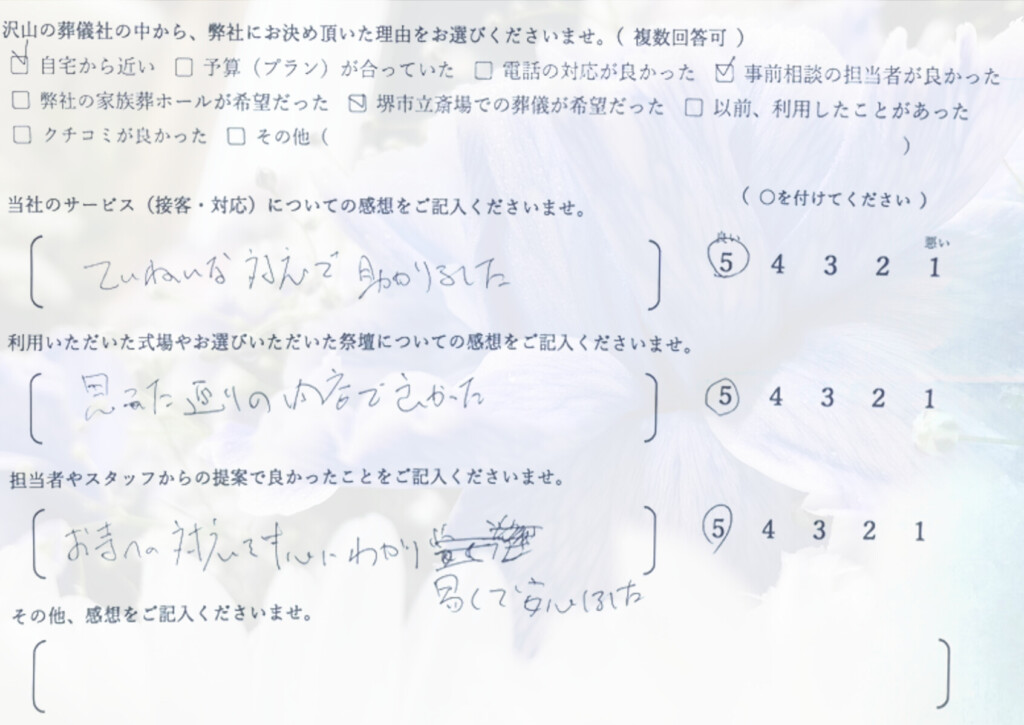 沢山の葬儀社の中から、弊社にお決め頂いた理由をお選びくださいませ。( 複数回答可 )
☑ 自宅から近い □ 予算（プラン）が合っていた □ 電話の対応が良かった ☑ 事前相談の担当者が良かった
□ 弊社の家族葬ホールが希望だった ☑ 堺市立斎場での葬儀が希望だった □ 以前、利用したことがあった
□ クチコミが良かった □ その他（ ）
当社のサービス（接客・対応）についての感想をご記入くださいませ。 （ ○を付けてください ）
良い 悪い
ていねいな対応で助かりました 5 4 3 2 1
利用いただいた式場やお選びいただいた祭壇についての感想をご記入くださいませ。
思った通りの内容で良かった 5 4 3 2 1
担当者やスタッフからの提案で良かったことをご記入くださいませ。
お寺への対応でわかり 5 4 3 2 1
易くて安心しました
その他、感想をご記入くださいませ。